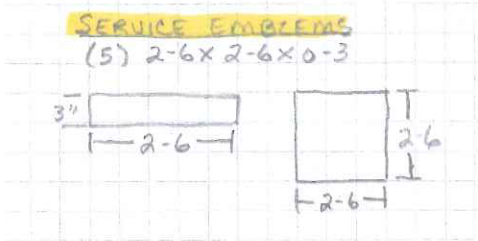 SERVICE EMBLEMS
(5) 2-6 x 2-6 x 0-3
3"
2-6
2-6
2-6